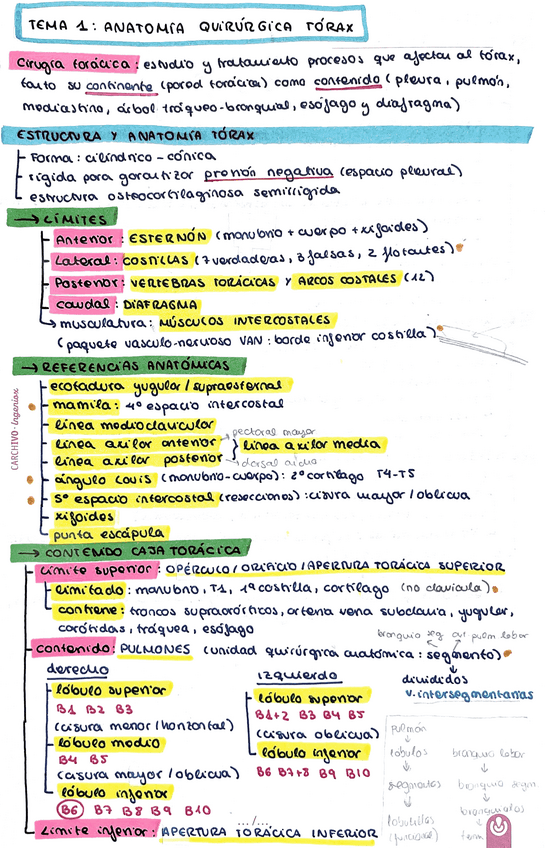 TEMA 1: ANATOMÍA QUIRÚRGICA TÓRAX
Cirugía torácica: estudio y tratamiento procesos que afectan al tórax,
tanto su continente (pared torácica) como contenido (pleura, pulmón,
mediastino, árbol tráqueo-bronquial, esófago y diafragma)
ESTRUCTURA Y ANATOMÍA TÓRAX
Forma: cilíndrico-cónica
rígida para garantizar presión negativa (espacio pleural)
estructura osteocartilaginosa semirrígida
→ LÍMITES
Anterior: ESTERNÓN (manubrio + cuerpo + xifoides)
Lateral: COSTILLAS (7 verdaderas, 3 falsas, 2 flotantes)
Posterior: VERTEBRAS TORÁCICAS Y ARCOS COSTALES (12)
Caudal: DIAFRAGMA
→ musculatura: MÚSCULOS INTERCOSTALES
(paquete vasculo-nervioso VAN: borde inferior costilla)
→ REFERENCIAS ANATÓMICAS
escotadura yugular/supraesternal
mamila: 4º espacio intercostal
línea medioclavicular
pectoral mayor
línea axilar anterior
línea axilar media
línea axilar posterior
dorsal ancho
ángulo Louis (manubrio-cuerpo): 2º cartílago T4-T5
5º espacio intercostal (resecciones): cisura mayor/oblicua
xifoides
punta escápula
CARCHIVO-Ingenioso
→ CONTENIDO CAJA TORÁCICA
Límite superior: OPÉRCULO/ORIFICIO/APERTURA TORÁCICA SUPERIOR
limitado: manubrio, T1, 1ª costilla, cartílago (no clavícula)
contiene: troncos supraaórticos, arteria vena subclavia, yugular,
carótidas, tráquea, esófago
bronquio seg art pulm lobar
contenido: PULMONES (unidad quirúrgica anatómica: segmento)
divididos
v. intersegmentarias
derecho
lóbulo superior
B1 B2 B3
(cisura menor/horizontal)
lóbulo medio
B4 B5
(cisura mayor/oblicua)
lóbulo inferior
B6 B7 B8 B9 B10
izquierdo
lóbulo superior
B1+2 B3 B4 B5
(cisura oblicua)
lóbulo inferior
B6 B7+8 B9 B10
pulmón
↓
lóbulos bronquio lobar
↓ ↓
segmentos bronquio segm
↓ ↓
lobulillos bronquiolos
(funcional) term
.../...
Límite inferior: APERTURA TORÁCICA INFERIOR